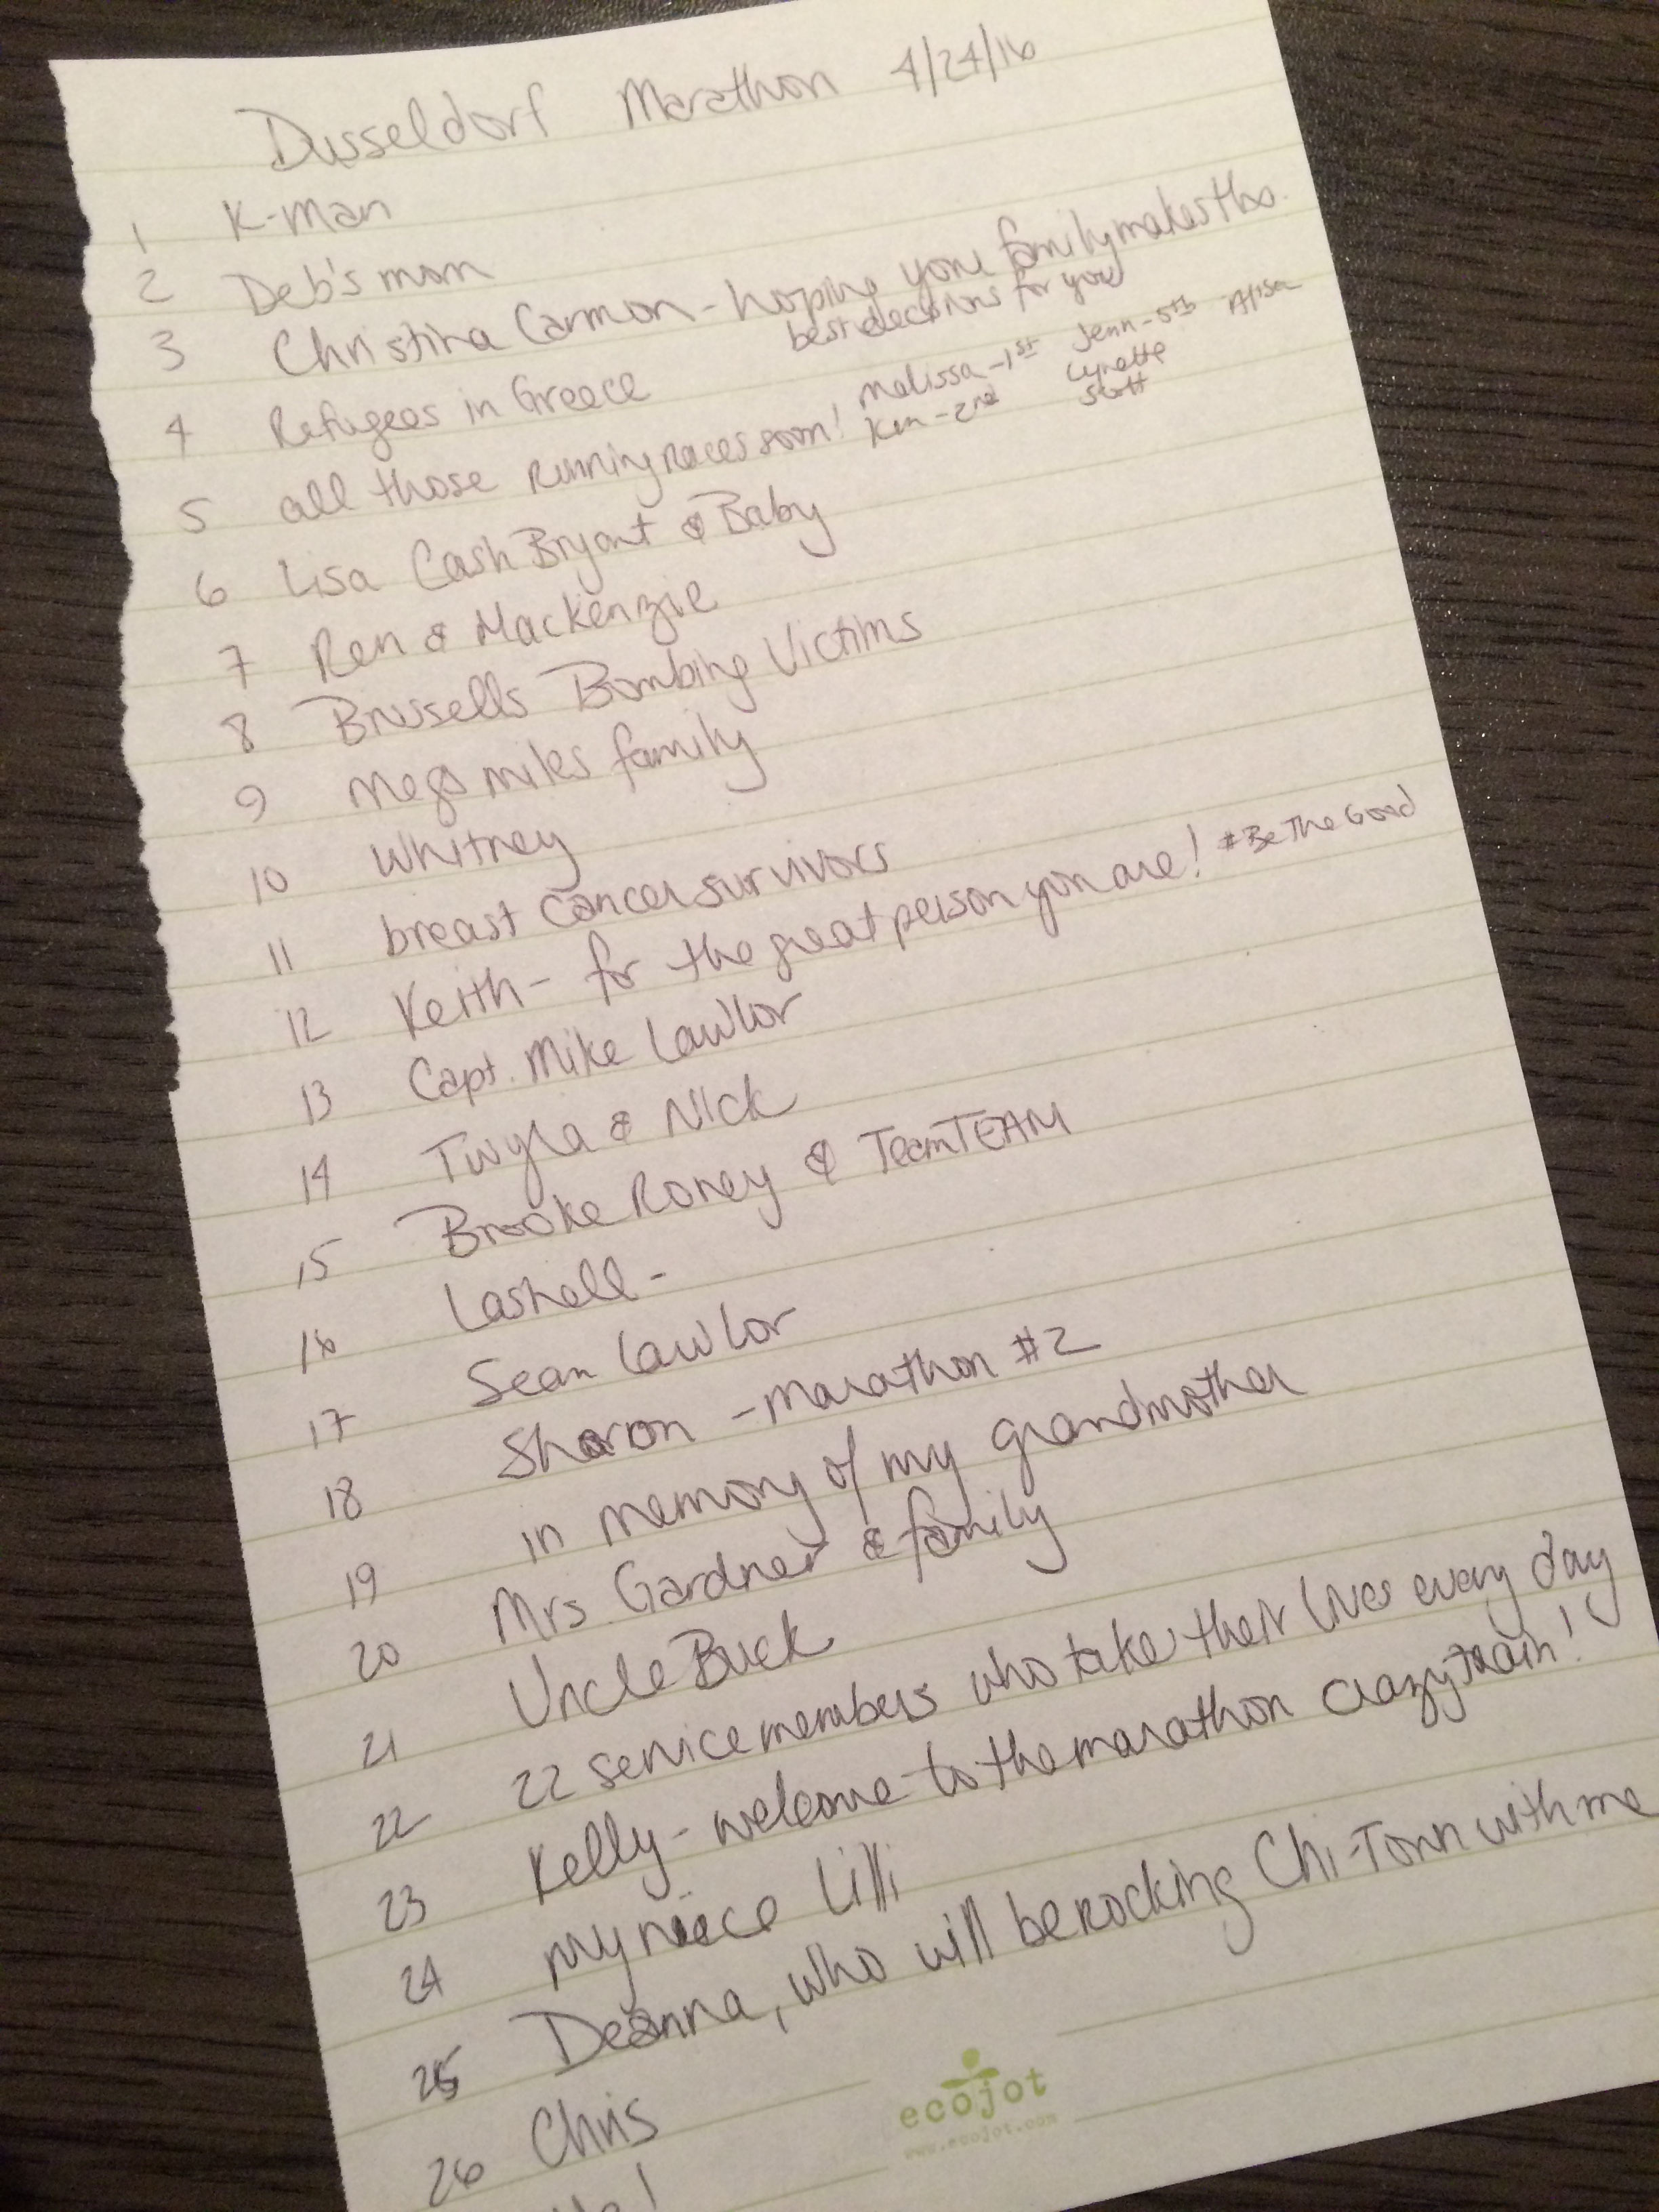 Dusseldorf Marathon 4/24/16
1 K-Man
2 Deb's mom
3 Christina Carmon - hoping your family makes the
best decisions for you
4 Refugees in Greece
5 all those running races soon! Melissa - 1st Jenn - 5th Alisa
Ken - 2nd Lynette
Scott
6 Lisa Cash Bryant & Baby
7 Ren & Mackenzie
8 Brussells Bombing Victims
9 Megs miles family
10 Whitney
11 breast cancer survivors
12 Keith - for the great person you are! #BeTheGood
13 Capt. Mike Lawlor
14 Twyla & Nick
15 Brooke Roney & TeamTEAM
16 Lashell -
17 Sean Lawlor
18 Sharon - marathon #2
19 in memory of my grandmother
20 Mrs Gardner & family
21 Uncle Buck
22 22 service members who take their lives every day
23 Kelly - welcome to the marathon crazy train!
24 my niece Lilli
25 Deanna, who will be rocking Chi-Town with me
26 Chris
ecojot
www.ecojot.com